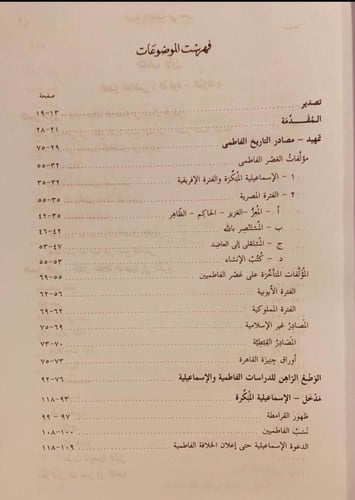 فهرست الموضوعات
صفحة
تصدير ١٣-١٩
المقدّمة ٢١-٢٨
تمهيد - مصادر التاريخ الفاطمي ٢٩-٧٥
مؤلّفات العصر الفاطمي ٣٢-٥٥
١ - الإسماعيلية المبكّرة والفترة الإفريقية ٣٢-٣٥
٢ - الفترة المصرية ٣٥-٥٥
أ - المعزّ - العزيز - الحاكم - الظّاهر ٣٥-٤٢
ب - المستنصر بالله ٤٢-٤٦
ج - المستعلي إلى العاضد ٤٧-٥٣
د - كتب الإنشاء ٥٣-٥٥
المؤلّفات المتأخّرة على عصر الفاطميين ٥٥-٦٩
الفترة الأيوبية ٥٦-٦٢
الفترة المملوكية ٦٢-٦٩
المصادر غير الإسلامية ٦٩-٧٥
المصادر القبطيّة ٧٠-٧٣
أوراق جنيزة القاهرة ٧٣-٧٥
الوضع الرّاهن للدراسات الفاطمية والإسماعيلية ٧٦-٩٢
مدخل - الإسماعيلية المبكّرة ٩٣-١١٨
ظهور القرامطة ٩٧-٩٩
نسب الفاطميين ١٠٠-١٠٨
الدعوة الإسماعيلية حتى إعلان الخلافة الفاطمية ١٠٩-١١٨